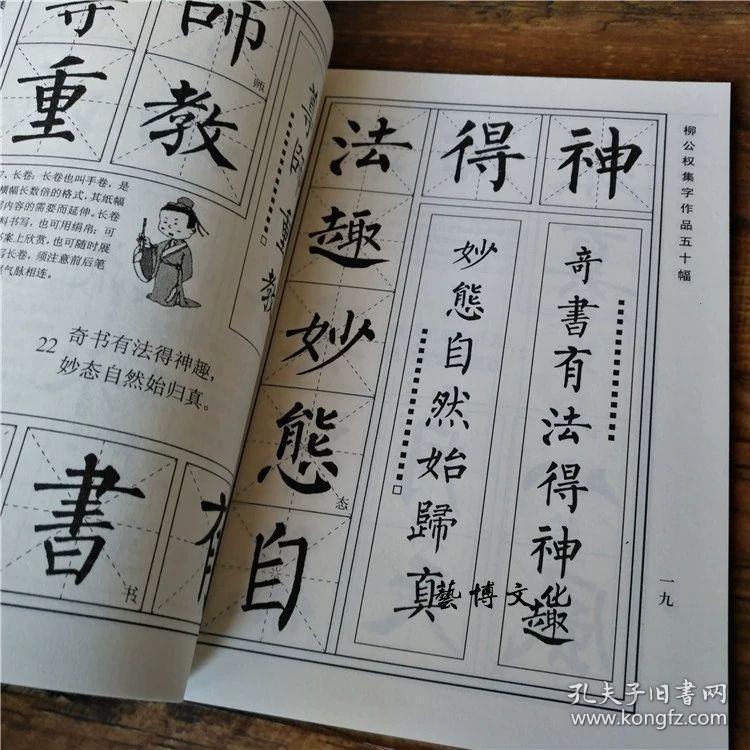 師
师
重
教
7、长卷：长卷也叫手卷，是
横幅长数倍的格式，其纸幅
内容的需要而延伸。长卷
料书写，也可用绢帛；可
案上欣赏，也可随时展
写长卷，须注意前后笔
气脉相连。
22 奇书有法得神趣，
妙态自然始归真。
書
书
法
得
神
趣
妙
態
态
自
奇書有法得神趣
妙態自然始歸真
藝博文化
柳公权集字作品五十幅
一九
孔夫子旧书网
www.kongfz.com